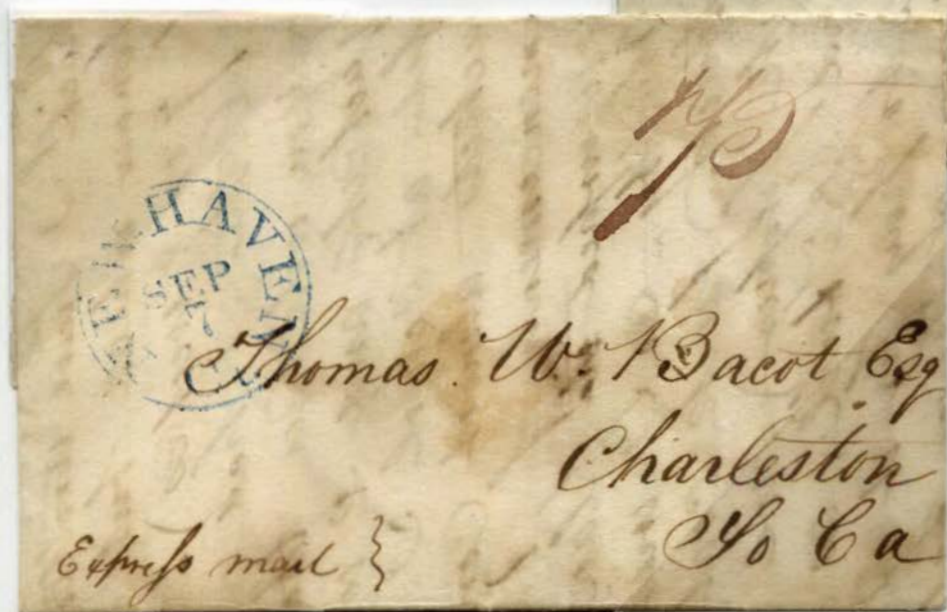 NEW HAVEN
SEP
7
Thomas. W. Bacot Esq
Charleston
So Ca
Express mail }